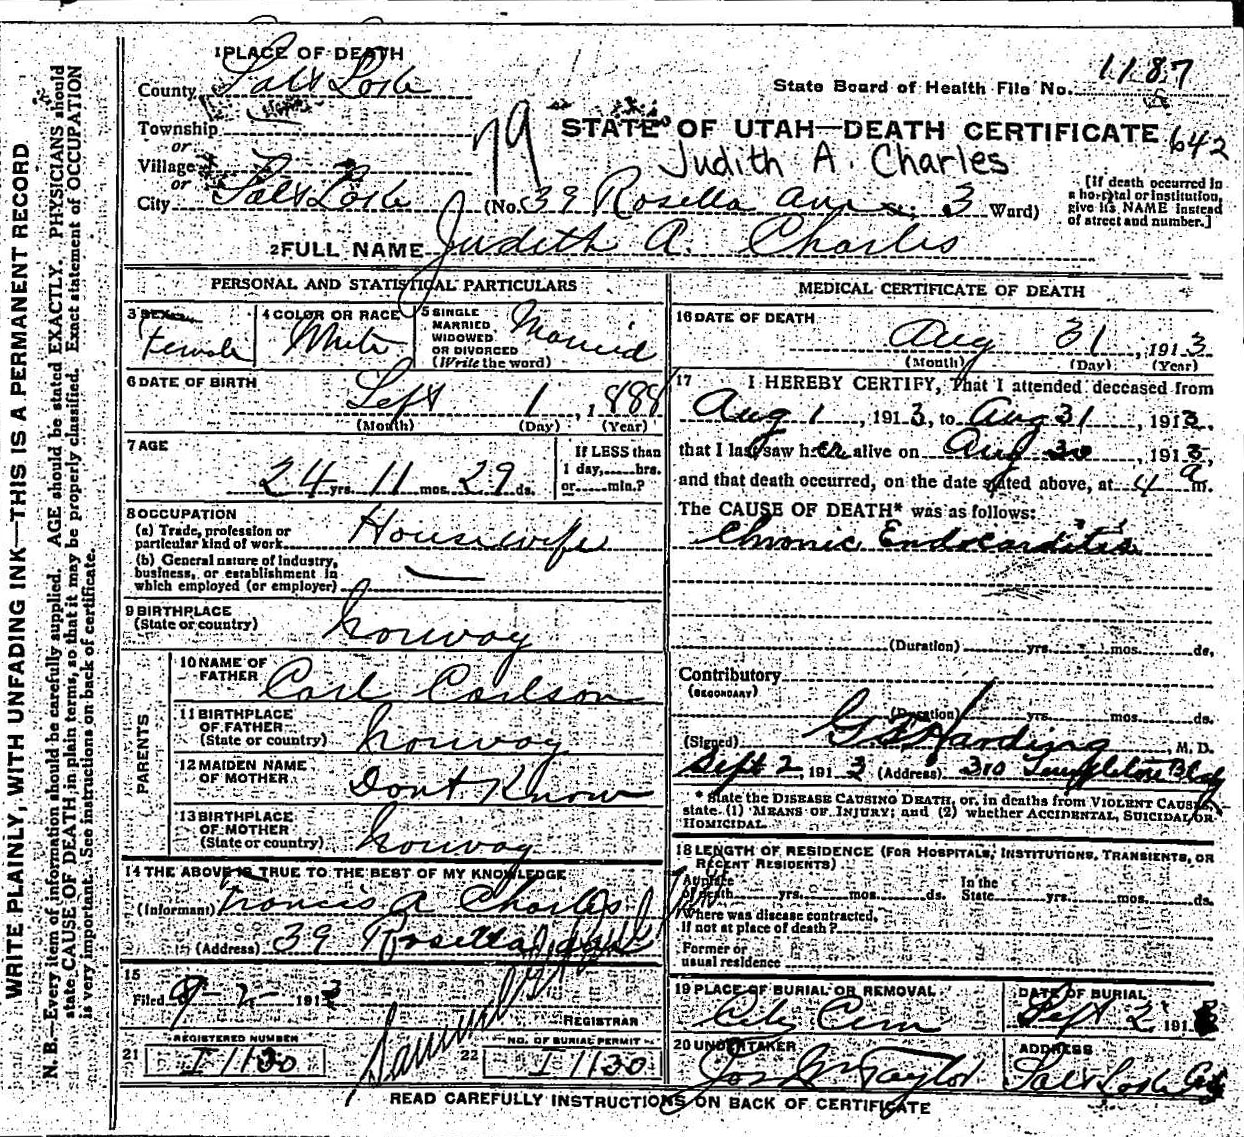 1 PLACE OF DEATH
County Salt Lake
State Board of Health File No. 1187
Township
or
79 STATE OF UTAH—DEATH CERTIFICATE 642
Village
or
Judith A. Charles
City Salt Lake (No. 39 Rosella 3 Ward)
[If death occurred in
a hospital or institution,
give its NAME instead
of street and number.]
2 FULL NAME Judith A. Charles
PERSONAL AND STATISTICAL PARTICULARS
3 SEX
Female
4 COLOR OR RACE
White
5 SINGLE
MARRIED
WIDOWED
OR DIVORCED
(Write the word)
Married
6 DATE OF BIRTH
Sept 1, 1888
(Month) (Day) (Year)
7 AGE
24 yrs. 11 mos. 29 ds.
If LESS than
1 day, hrs.
or min.?
8 OCCUPATION
(a) Trade, profession or
particular kind of work Housewife
(b) General nature of Industry,
business, or establishment in
which employed (or employer) —
9 BIRTHPLACE
(State or country) Norway
PARENTS
10 NAME OF
FATHER Carl Carlson
11 BIRTHPLACE
OF FATHER
(State or country) Norway
12 MAIDEN NAME
OF MOTHER Dont Know
13 BIRTHPLACE
OF MOTHER
(State or country) Norway
14 THE ABOVE IS TRUE TO THE BEST OF MY KNOWLEDGE
(Informant) Francis A Charles
(Address) 39 Rosella
15
Filed 9-2-1913
REGISTRAR
REGISTERED NUMBER
21 I 1130
NO. OF BURIAL PERMIT
22 I 1130
MEDICAL CERTIFICATE OF DEATH
16 DATE OF DEATH
Aug 31, 1913
(Month) (Day) (Year)
17 I HEREBY CERTIFY, That I attended deceased from
Aug 1, 1913, to Aug 31, 1913,
that I last saw her alive on Aug 30, 1913,
and that death occurred, on the date stated above, at 4 a m.
The CAUSE OF DEATH* was as follows:
Chronic Endocarditis
(Duration) yrs. mos. ds.
Contributory
(SECONDARY)
(Duration) yrs. mos. ds.
(Signed) G S Harding, M. D.
Sept 2, 1913 (Address) 310 Templeton Bldg
* State the DISEASE CAUSING DEATH, or, in deaths from VIOLENT CAUSES,
state (1) MEANS OF INJURY; and (2) whether ACCIDENTAL, SUICIDAL, OR
HOMICIDAL.
18 LENGTH OF RESIDENCE (FOR HOSPITALS, INSTITUTIONS, TRANSIENTS, OR
RECENT RESIDENTS)
At place
of death yrs. mos. ds.
In the
State yrs. mos. ds.
Where was disease contracted,
if not at place of death?
Former or
usual residence
19 PLACE OF BURIAL OR REMOVAL
City Cem
DATE OF BURIAL
Sept 2, 1913
20 UNDERTAKER
Jos Wm Taylor
ADDRESS
Salt Lake
READ CAREFULLY INSTRUCTIONS ON BACK OF CERTIFICATE
WRITE PLAINLY, WITH UNFADING INK—THIS IS A PERMANENT RECORD
N. B.—Every item of information should be carefully supplied. AGE should be stated EXACTLY. PHYSICIANS should
state CAUSE OF DEATH in plain terms, so that it may be properly classified. Exact statement of OCCUPATION
is very important. See instructions on back of certificate.